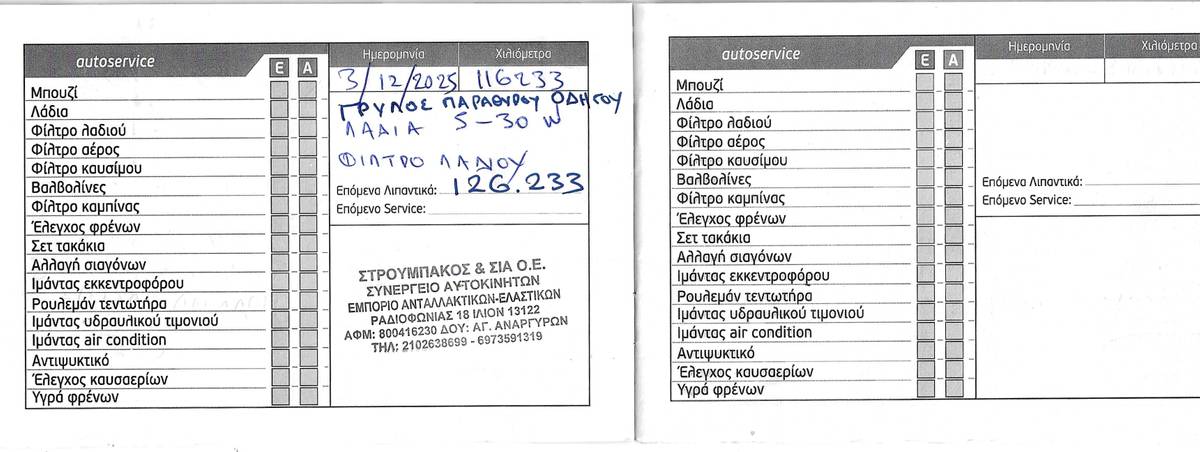 autoservice Ε Α
Μπουζί
Λάδια
Φίλτρο λαδιού
Φίλτρο αέρος
Φίλτρο καυσίμου
Βαλβολίνες
Φίλτρο καμπίνας
Έλεγχος φρένων
Σετ τακάκια
Αλλαγή σιαγόνων
Ιμάντας εκκεντροφόρου
Ρουλεμάν τεντωτήρα
Ιμάντας υδραυλικού τιμονιού
Ιμάντας air condition
Αντιψυκτικό
Έλεγχος καυσαερίων
Υγρά φρένων
Ημερομηνία Χιλιόμετρα
3/12/2025 116233
ΓΡΥΛΟΣ ΠΑΡΑΘΥΡΟΥ ΟΔΗΓΟΥ
ΛΑΔΙΑ 5-30 W
ΦΙΛΤΡΟ ΛΑΔΙΟΥ
Επόμενα Λιπαντικά: 126.233
Επόμενο Service:
ΣΤΡΟΥΜΠΑΚΟΣ & ΣΙΑ Ο.Ε.
ΣΥΝΕΡΓΕΙΟ ΑΥΤΟΚΙΝΗΤΩΝ
ΕΜΠΟΡΙΟ ΑΝΤΑΛΛΑΚΤΙΚΩΝ-ΕΛΑΣΤΙΚΩΝ
ΡΑΔΙΟΦΩΝΙΑΣ 18 ΙΛΙΟΝ 13122
ΑΦΜ: 800416230 ΔΟΥ: ΑΓ. ΑΝΑΡΓΥΡΩΝ
ΤΗΛ: 2102638699 - 6973591319
autoservice Ε Α
Μπουζί
Λάδια
Φίλτρο λαδιού
Φίλτρο αέρος
Φίλτρο καυσίμου
Βαλβολίνες
Φίλτρο καμπίνας
Έλεγχος φρένων
Σετ τακάκια
Αλλαγή σιαγόνων
Ιμάντας εκκεντροφόρου
Ρουλεμάν τεντωτήρα
Ιμάντας υδραυλικού τιμονιού
Ιμάντας air condition
Αντιψυκτικό
Έλεγχος καυσαερίων
Υγρά φρένων
Ημερομηνία Χιλιόμετρα
Επόμενα Λιπαντικά:
Επόμενο Service: